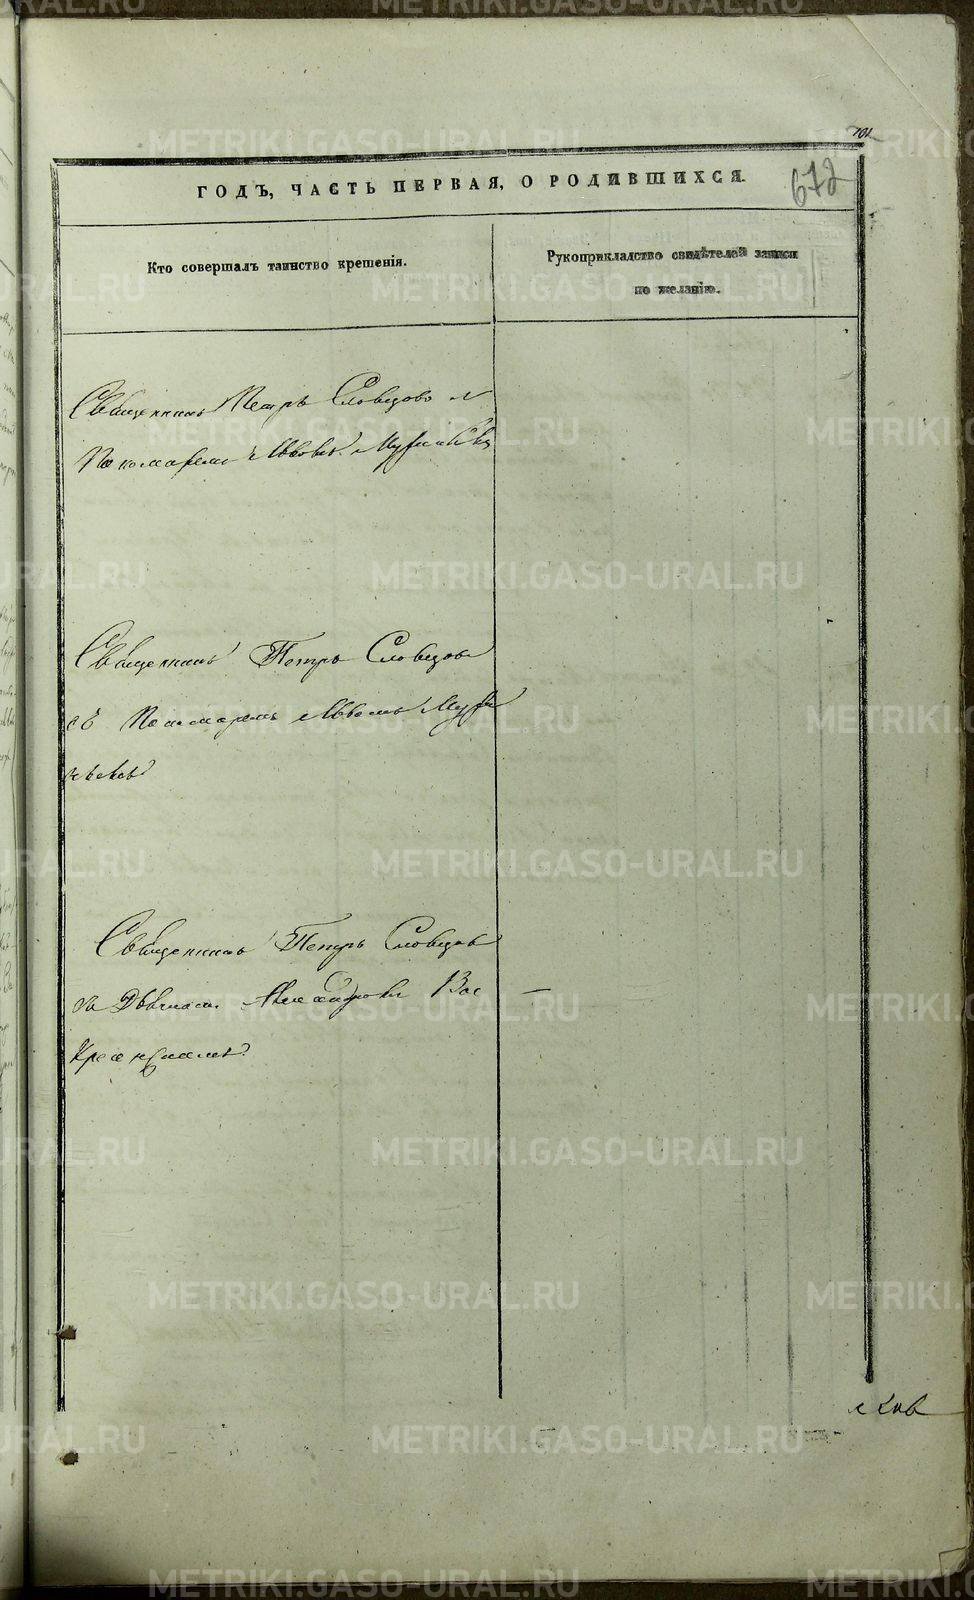 701
672
ГОДЪ, ЧАСТЬ ПЕРВАЯ, О РОДИВШИХСЯ.
Кто совершалъ таинство крещенія.
Рукоприкладство свидѣтелей записи
по желанію.
Священникъ Петръ Словцовъ и
Пономаремъ Львовъ
Священникъ Петръ Словцовъ
съ Пономаремъ Львомъ
Священникъ Петръ Словцовъ
Дьячкомъ Александромъ Вос
Кресенскимъ
METRIKI.GASO-URAL.RU